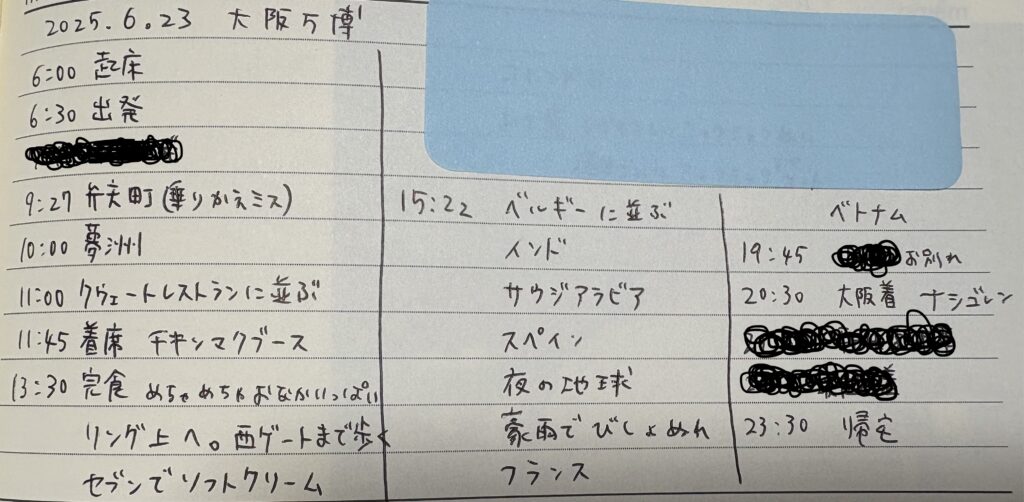 2025.6.23 大阪万博
6:00 起床
6:30 出発
9:27 弁天町(乗りかえミス)
10:00 夢洲
11:00 クウェートレストランに並ぶ
11:45 着席 チキンマクブース
13:30 完食 めちゃめちゃおなかいっぱい
リング上へ。西ゲートまで歩く
セブンでソフトクリーム
15:22 ベルギーに並ぶ
インド
サウジアラビア
スペイン
夜の地球
豪雨でびしょぬれ
フランス
ベトナム
19:45 お別れ
20:30 大阪着 ナシゴレン
23:30 帰宅